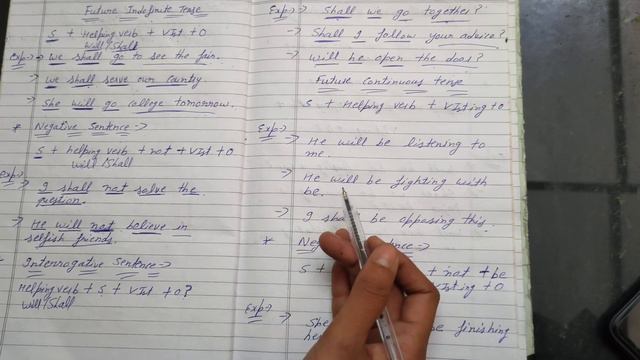 Future Indefinite Tense
S + Helping verb + VIst + O
Will/Shall
Exp:-> we shall go to see the fair.
-> we shall serve our country
-> She will go college tomorrow.
* Negative Sentence->
S + helping verb + not + VIst + O
Will/Shall
Exp:-> I shall not solve the
question.
-> He will not believe in
selfish friends.
Interrogative Sentence->
Helping verb + S + VIst + O?
Will/Shall
Exp:-> Shall we go together?
-> Shall I follow your advice?
-> Will he open the door?
Future Continuous tense
S + Helping verb + VIsting + O
Exp:-> He will be listening to
me.
-> He will be fighting with
be.
-> I be opposing this.
*
S + + not + be
VIsting + O
Exp:-> She finishing